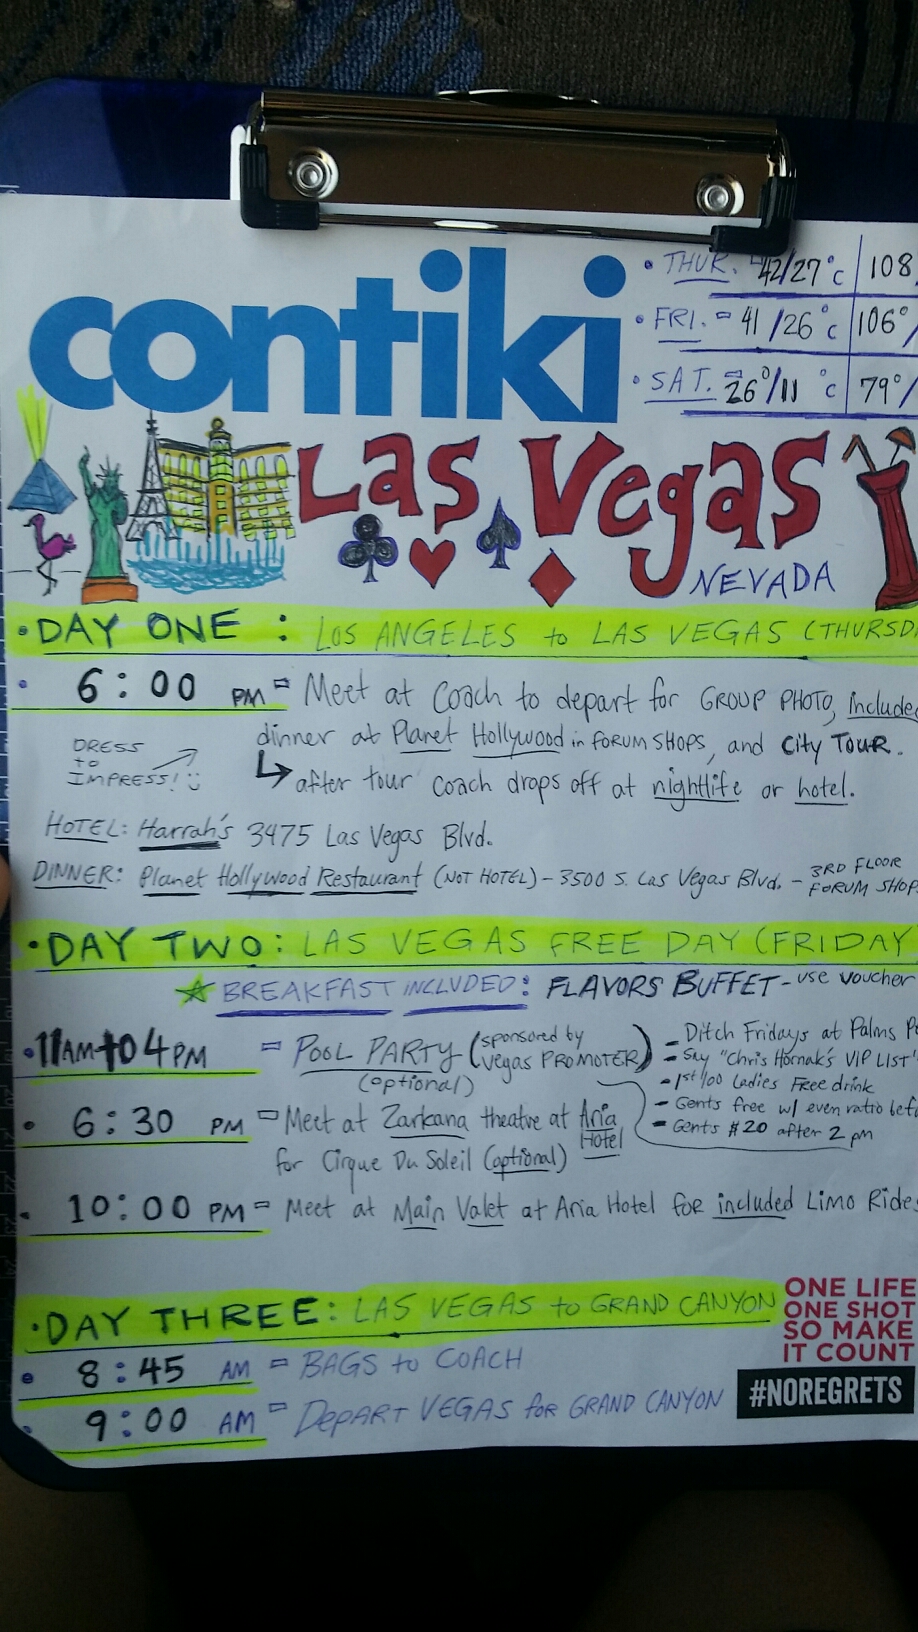 contiki
• THUR. = 42/27°C 108
• FRI. = 41/26°C 106°/
• SAT. = 26°/11 °C 79°/
Las Vegas
NEVADA
• DAY ONE : LOS ANGELES to LAS VEGAS (THURSD
• 6:00 PM = Meet at Coach to depart for GROUP PHOTO, included
dinner at Planet Hollywood in FORUM SHOPS, and City TOUR.
DRESS
to
IMPRESS!
after tour coach drops off at nightlife or hotel.
HOTEL: Harrah's 3475 Las Vegas Blvd.
DINNER: Planet Hollywood Restaurant (NOT HOTEL) - 3500 S. Las Vegas Blvd. - 3RD FLOOR
FORUM SHOPS
• DAY TWO: LAS VEGAS FREE DAY (FRIDAY)
BREAKFAST INCLUDED: FLAVORS BUFFET - use voucher
• 11AM to 4PM = POOL PARTY (sponsored by
Vegas PROMOTER)
(optional)
- Ditch Fridays at Palms P
- Say "Chris Hornak's VIP LIST"
- 1st 100 Ladies Free drink
- Gents free w/ even ratio bef
- Gents $20 after 2 pm
• 6:30 PM = Meet at Zarkana theatre at Aria
Hotel
for Cirque Du Soleil (optional)
• 10:00 PM = Meet at Main Valet at Aria Hotel for included Limo Rides
• DAY THREE: LAS VEGAS to GRAND CANYON
• 8:45 AM = BAGS to COACH
• 9:00 AM = DEPART VEGAS for GRAND CANYON
ONE LIFE
ONE SHOT
SO MAKE
IT COUNT
#NOREGRETS